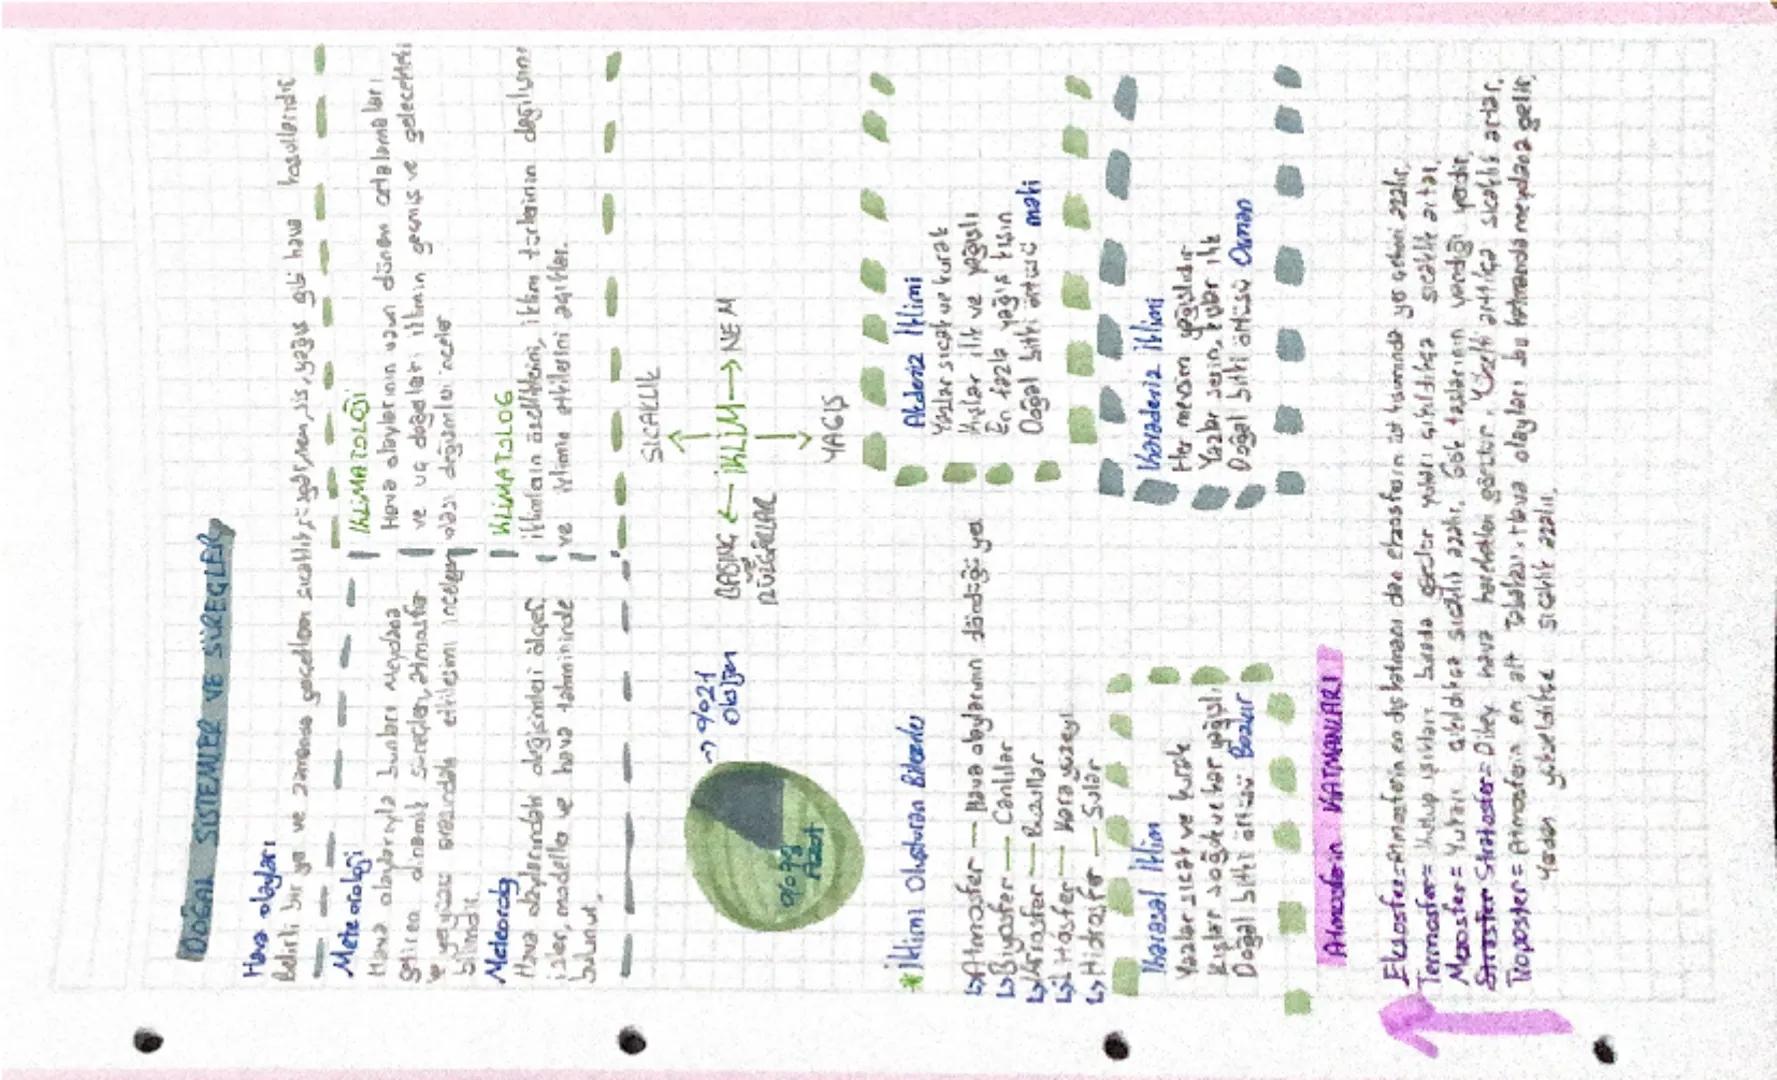 DOĞAL SİSTEMLER VE SÜREÇLER
Hava olayları
Belirli bir yer ve zamanda geçerli olan sıcaklık, rüzgar, nem, sis, yağış gibi hava koşullarıdır
Meteoroloji
Hava olaylarıyla bunları meydana
getiren dinamik süreçleri, atmosfer
ve yeryüzü arasındaki etkileşimi inceleyen
bilimdir.
Meteorolog
Hava olaylarındaki değişimleri ölçer,
izler, modeller ve hava tahmininde
bulunur.
KLİMATOLOJİ
Hava olaylarının uzun dönem ortalamaları
ve uç değerleri iklimin geçmiş ve gelecekteki
olası değişimleri inceler
KLİMATOLOG
iklimlerin özelliklerini, iklim türlerinin dağılışını
ve iklimin etkilerini açıklar.
SICAKLIK
BASINÇ ← İKLİM → NEM
RÜZGARLAR
YAĞIŞ
→ %21
Oksijen
Azot
* İklimi Oluşturan Bileşenler
↳ Atmosfer — Hava olaylarının döndüğü yer
↳ Biyosfer — Canlılar
↳ Kriyosfer — Buzullar
↳ Litosfer — Kara yüzeyi
↳ Hidrosfer — Sular
Akdeniz İklimi
Yazlar sıcak ve kurak
Kışlar ılık ve yağışlı
En fazla yağış kışın
Doğal bitki örtüsü maki
Karadeniz iklimi
Her mevsim yağışlıdır
Yazlar serin, kışlar ılık
Doğal bitki örtüsü Orman
Karasal İklim
Yazlar sıcak ve kurak
Kışlar soğuk ve kar yağışlı
Doğal bitki örtüsü Bozkır
Atmosferin KATMANLARI
Ekzosfer = Atmosferin en dış katmanı dır etrosferin üst kısmında yer çekimi azalır.
Termosfer = Kutup ışıkları burada görülür yukarı çıkıldıkça sıcaklık artar.
Mezosfer = Yukarı çıkıldıkça sıcaklık azalır. Gök taşlarının yandığı yerdir.
Stratosfer = Dikey hava hareketleri görülür. Yükselti arttıkça sıcaklık artar.
Troposfer = Atmosferin en alt tabakası. Hava olayları bu katmanda meydana gelir,
Yerden yükseldikçe sıcaklık azalır.